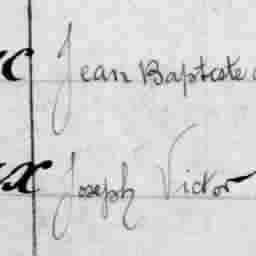 c Jean Baptiste
x Joseph Victor